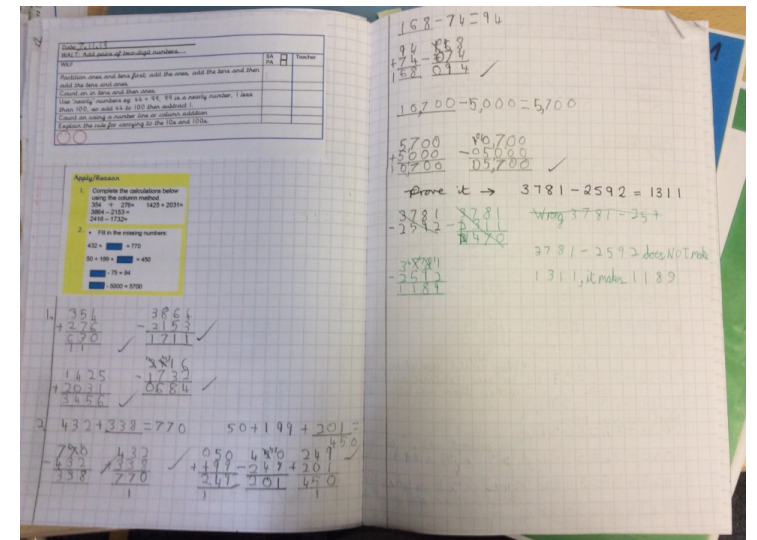 Date 7.11.13
WALT: Add pairs of two-digit numbers.
WILF
SA
PA
Teacher
Partition ones and tens first, add the ones, add the tens and then
add the tens and ones.
Count on in tens and then ones.
Use 'nearly' numbers eg 46 + 99, 99 is a nearly number, 1 less
than 100, so add 46 to 100 then subtract 1.
Count on using a number line or column addition
Explain the rule for carrying to the 10s and 100s.
Apply/Reason
1. Complete the calculations below
using the column method.
354 + 276= 1425 + 2031=
3864 – 2153 =
2416 – 1732=
2. • Fill in the missing numbers:
432 + = 770
50 + 199 + = 450
- 75 = 94
- 5000 = 5700
1. 354 3864
+ 276 - 2153
630 1711
11
1425 2416
+ 2031 - 1732
3456 0684
2. 432 + 338 = 770 50 + 199 + 201 =
450
770 432 050 450 249
- 432 + 338 + 199 - 249 + 201
338 770 249 201 450
1 1 1
168 - 74 = 94
94 168
+ 74 - 074
168 094
10,700 - 5,000 = 5,700
5,700 10,700
+ 5000 - 05000
0,700 05,700
Prove it → 3781 - 2592 = 1311
3781 3781 Wrong 3781 - 25
- 2592 - 1311
2470
3781 - 2592 does NOT make
3781 1311, it makes 1189
- 2592
1189